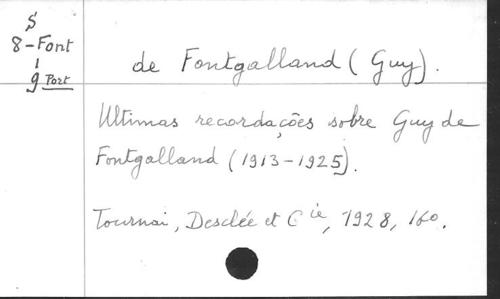 S
8-Font
9 Port
de Fontgalland (Guy).
Ultimas recordações sobre Guy de
Fontgalland (1913-1925).
Tournai, Desclée et Cie, 1928, 16o.